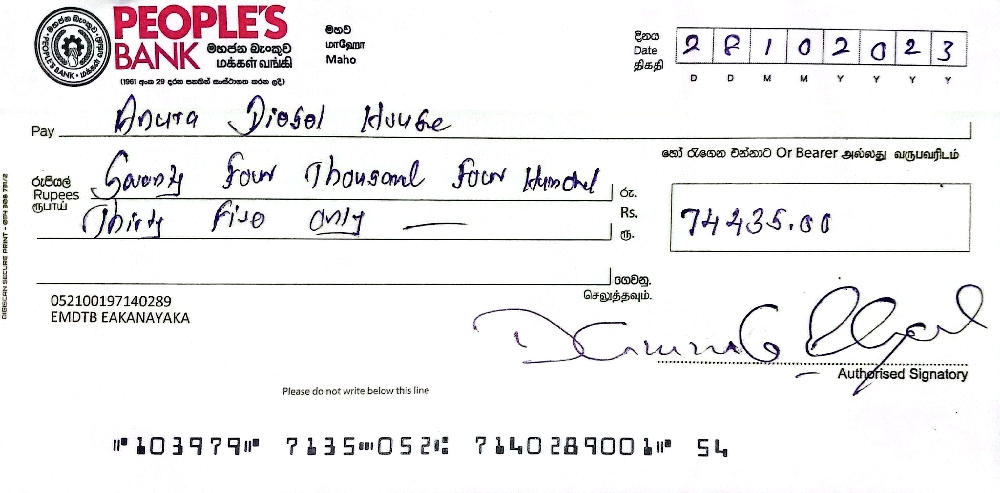 PEOPLE'S
BANK මහජන බැංකුව
மக்கள் வங்கி
(1961 අංක 29 දරන පනතින් සංස්ථාපනය කරන ලදි)
මහව
மாஹோ
Maho
දිනය
Date
திகதி
2 8 1 0 2 0 2 3
D D M M Y Y Y Y
Pay Anura Diesel House
හෝ රැගෙන එන්නාට Or Bearer அல்லது வருபவரிடம்
රුපියල්
Rupees
ரூபாய்
Seventy Four Thousand Four Hundred
Thirty Five Only
රු.
Rs.
ரூ.
74435.00
ගෙවනු.
செலுத்தவும்.
052100197140289
EMDTB EAKANAYAKA
Authorised Signatory
Please do not write below this line
⑈103979⑈ 7135⑉052⑆ 7140289001⑈ 54